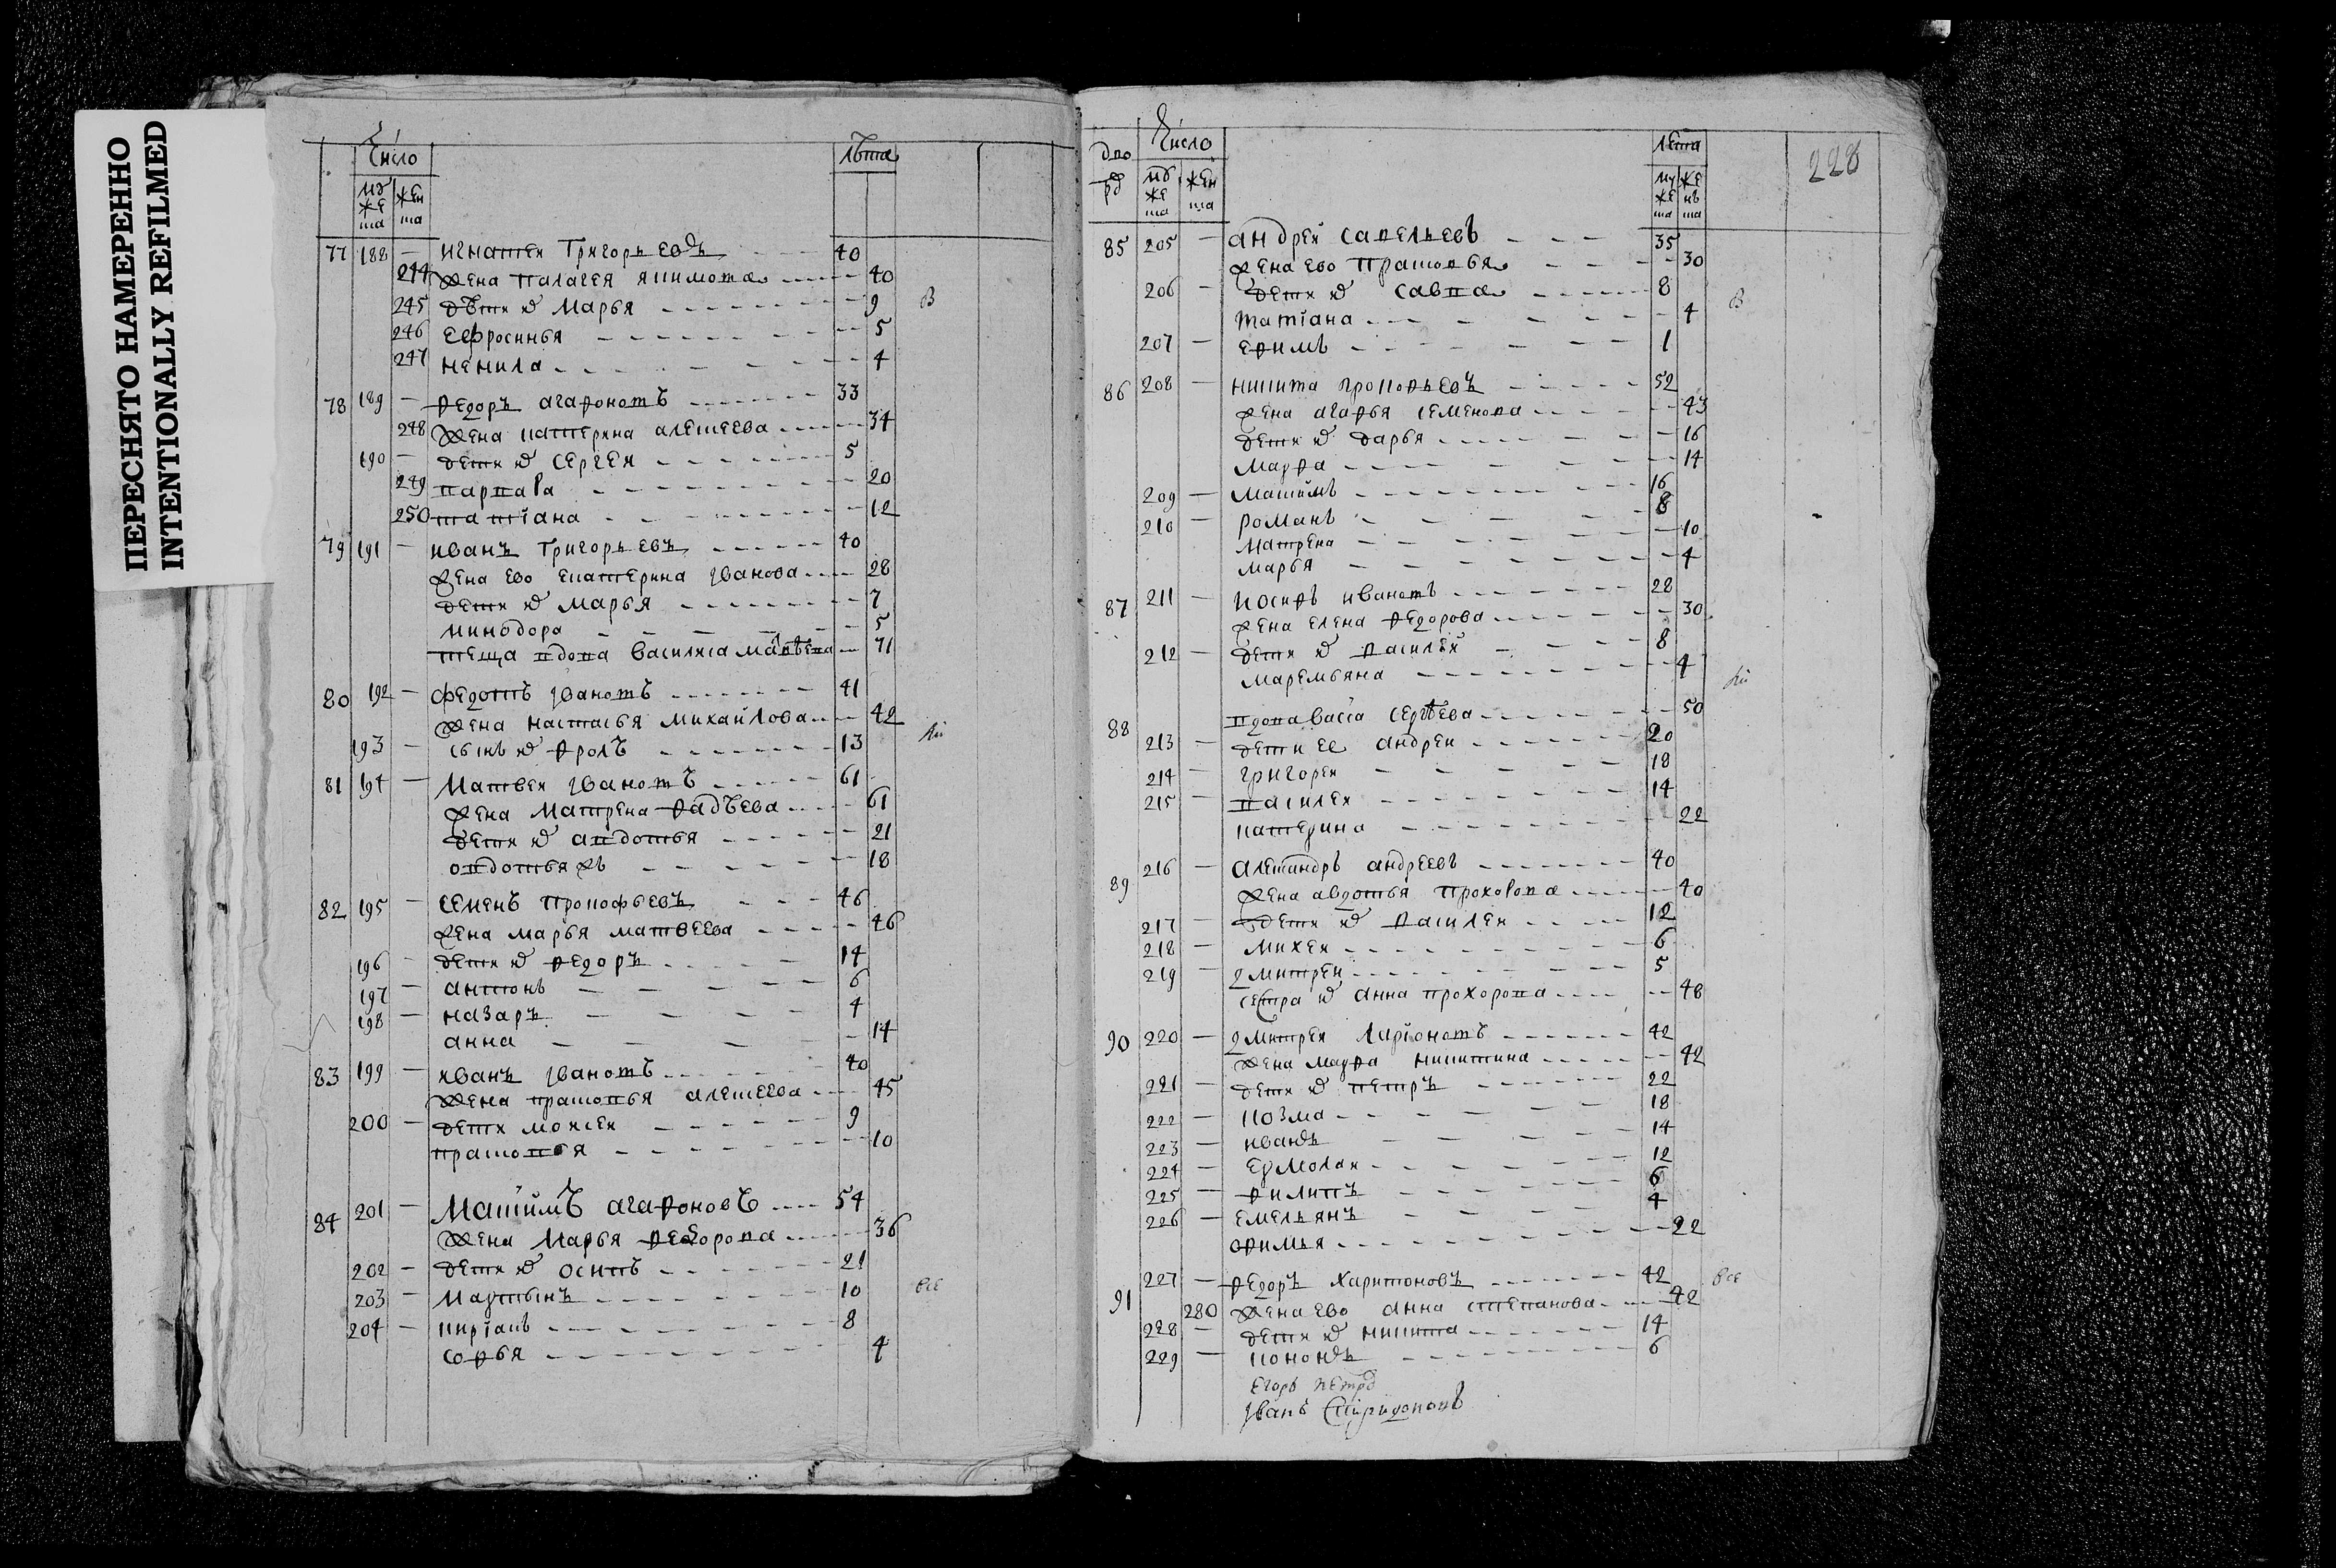 ПЕРЕСНЯТО НАМЕРЕННО
INTENTIONALLY REFILMED
Число лѣта
му же ска жен ска
77 188 — игнатеи григорьевъ 40
244 жена палагея якимова 40
245 дѣти их марья 9 В
246 ефросинья 5
247 ненила 4
78 189 — федоръ агафоновъ 33
248 жена катерина алексеева 34
190 — дети их сергеи 5
249 варвара 20
250 татиана 12
79 191 — иванъ григорьевъ 40
жена ево екатерина иванова 28
дети их марья 7
минодора 5
теща вдова василиса матвѣева 71
80 192 — федотъ ивановъ 41
жена настасья михайлова 42
193 — сынъ их фролъ 13
81 194 — матвеи ивановъ 61
жена матрена фадѣева 61
дети их авдотья 21
овдотья жъ 18
82 195 — семенъ прокофьевъ 46
жена марья матвеева 46
196 — дети их федоръ 14
197 — антонъ 6
198 — назаръ 4
анна 14
83 199 — иванъ ивановъ 40
жена прасковья алексеева 45
200 — дети моисеи 9
прасковья 10
84 201 — максимъ агафоновъ 54
жена марья федорова 36
202 — дети их осипъ 21
203 — мартынъ 10 все
204 — кирианъ 8
софья 4
дво ры Число лета 228
му же ска жен ска му же ска же нь ска
85 205 — андреи савельевъ 35
жена ево прасковья 30
206 — дети их савва 8 В
татиана 4
207 — ефимъ 1
86 208 — никита прокофьевъ 52
жена агафья семенова 43
дети их дарья 16
мавра 14
209 — максимъ 16
210 — романъ 8
матрена 10
марья 4
87 211 — иосифъ ивановъ 28
жена елена федорова 30
212 — дети их василеи 8
маремьяна 4
88 вдова васса сергѣева 50
213 — дети ее андреи 20
214 — григореи 18
215 — василеи 14
катерина 22
89 216 — александръ андреевъ 40
жена авдотья прохорова 40
217 — дети их василеи 12
218 — михеи 6
219 — дмитреи 5
сестра их анна прохорова 48
90 220 — дмитреи ларионовъ 42
жена мавра никитина 42
221 — дети их петръ 22
222 — козма 18
223 — иванъ 14
224 — ермолаи 12
225 — филипъ 6
226 — емельянъ 4
офимья 22
91 227 — федоръ харитоновъ 42 все
280 жена ево анна степанова 42
228 — дети их никита 14
229 — кононъ 6
егоръ петръ
иванъ спиридоновъ